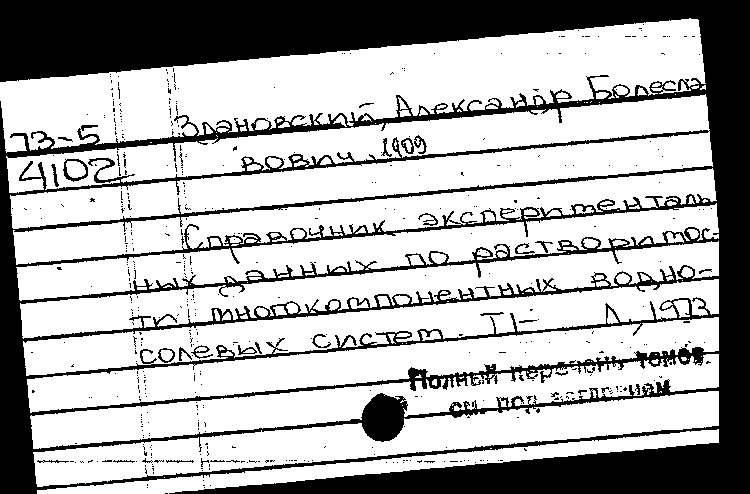 73-5
4102
Здановский, Александр Болесла
вович, 1909
Справочник эксперименталь
ных данных по растворимос-
ти многокомпонентных водно-
солевых систем. Т1- Л, 1973
Полный перечень томов
см. под заглавием